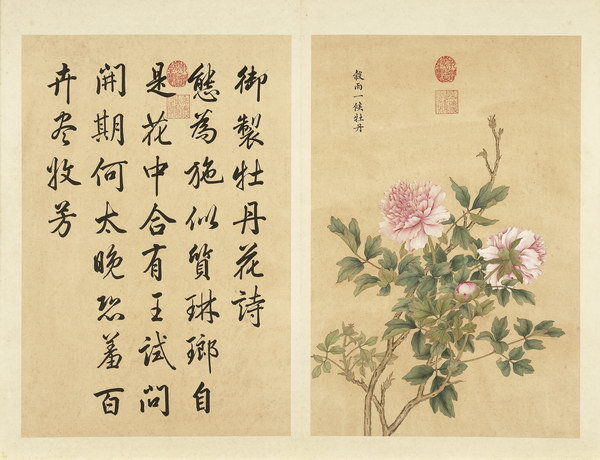 穀雨一候牡丹
御製牡丹花詩
態為施似質琳瑯自
是花中合有王試問
開期何太晚恐羞百
卉盡收芳